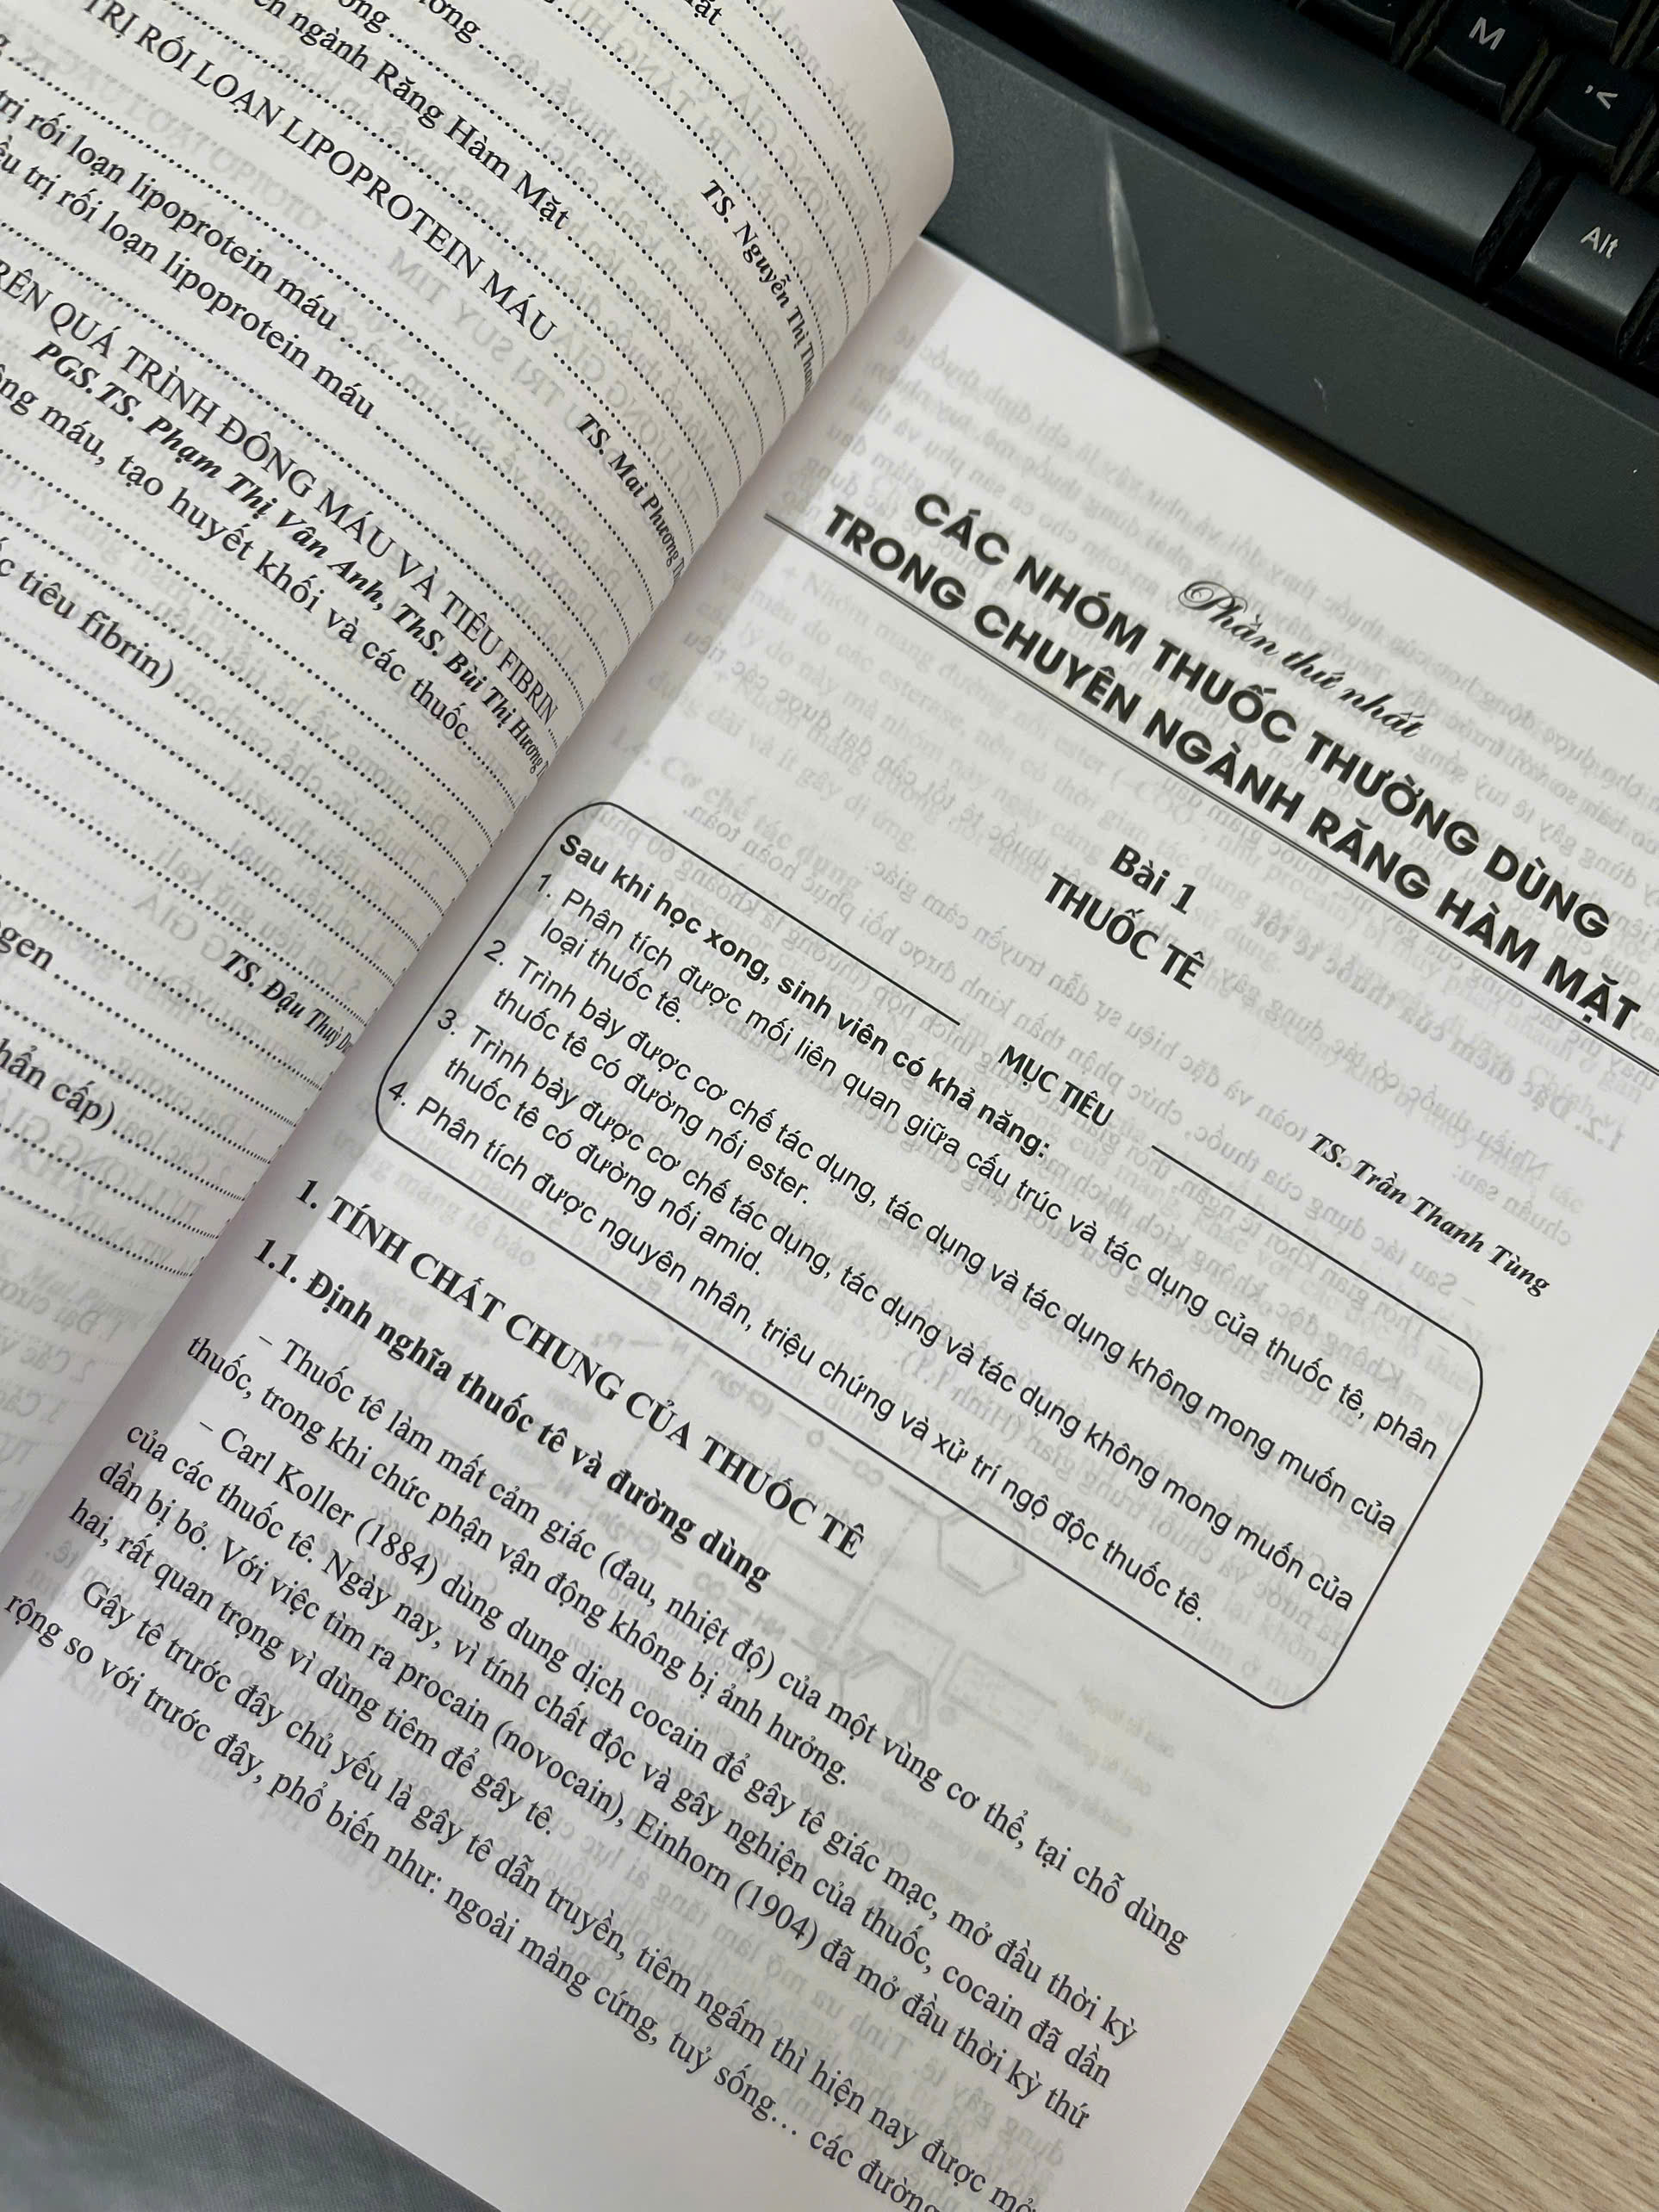 ngành Răng Hàm Mặt
TS. Nguyễn Thị
TRỊ RỐI LOẠN LIPOPROTEIN MÁU
trị rối loạn lipoprotein máu
trị rối loạn lipoprotein máu
TS. Mai Phương
QUÁ TRÌNH ĐÔNG MÁU VÀ TIÊU FIBRIN
PGS.TS. Phạm Thị Vân Anh, ThS. Bùi Thị Hương
máu, tạo huyết khối và các thuốc
tiêu fibrin)
TS. Đậu Thuỳ
cấp)
Phần thứ nhất
CÁC NHÓM THUỐC THƯỜNG DÙNG
TRONG CHUYÊN NGÀNH RĂNG HÀM MẶT
Bài 1
THUỐC TÊ
TS. Trần Thanh Tùng
MỤC TIÊU
Sau khi học xong, sinh viên có khả năng:
1. Phân tích được mối liên quan giữa cấu trúc và tác dụng của thuốc tê, phân
loại thuốc tê.
2. Trình bày được cơ chế tác dụng, tác dụng và tác dụng không mong muốn của
thuốc tê có đường nối ester.
3. Trình bày được cơ chế tác dụng, tác dụng và tác dụng không mong muốn của
thuốc tê có đường nối amid.
4. Phân tích được nguyên nhân, triệu chứng và xử trí ngộ độc thuốc tê.
1. TÍNH CHẤT CHUNG CỦA THUỐC TÊ
1.1. Định nghĩa thuốc tê và đường dùng
– Thuốc tê làm mất cảm giác (đau, nhiệt độ) của một vùng cơ thể, tại chỗ dùng
thuốc, trong khi chức phận vận động không bị ảnh hưởng.
– Carl Koller (1884) dùng dung dịch cocain để gây tê giác mạc, mở đầu thời kỳ
của các thuốc tê. Ngày nay, vì tính chất độc và gây nghiện của thuốc, cocain đã dần
dần bị bỏ. Với việc tìm ra procain (novocain), Einhorn (1904) đã mở đầu thời kỳ thứ
hai, rất quan trọng vì dùng tiêm để gây tê.
Gây tê trước đây chủ yếu là gây tê dẫn truyền, tiêm ngấm thì hiện nay được mở
rộng so với trước đây, phổ biến như: ngoài màng cứng, tuỷ sống... các đường
M
Alt